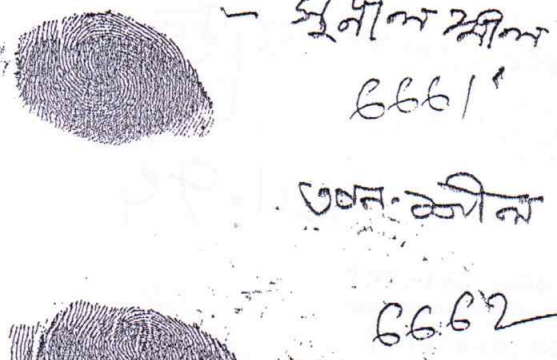 সুনীল শীল
6661
তপন শীল
6662